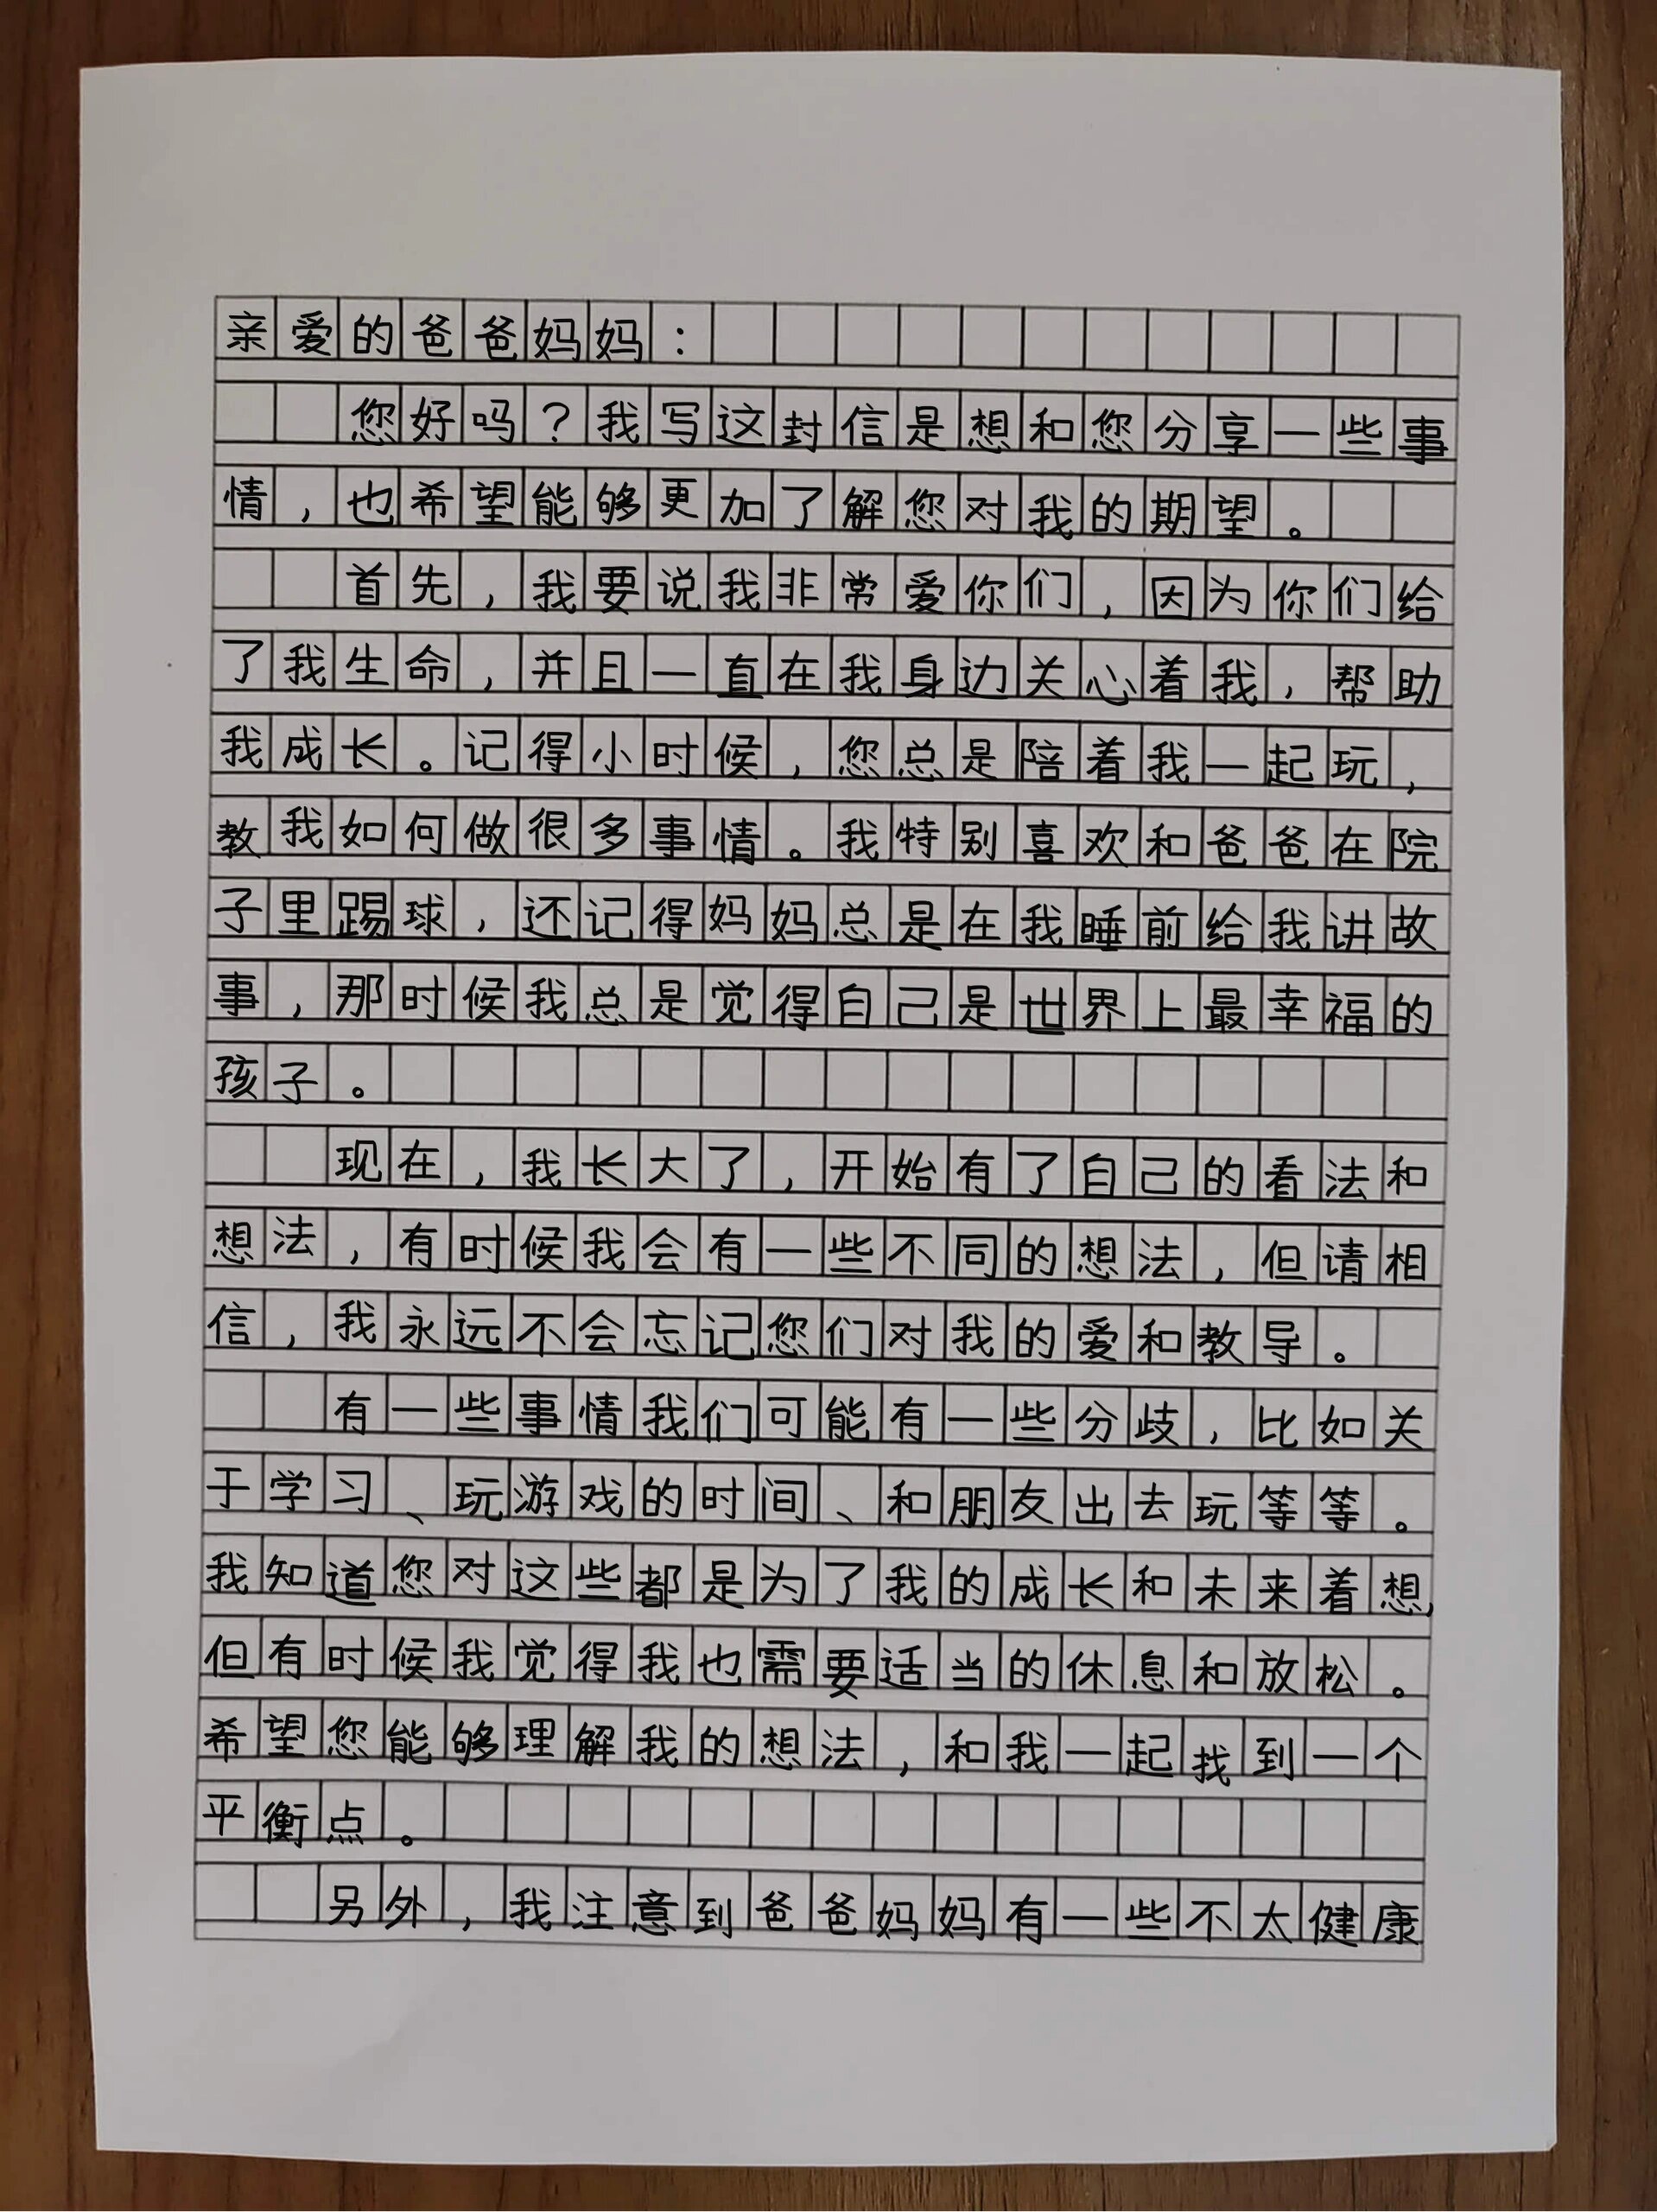 亲爱的爸爸妈妈：
您好吗？我写这封信是想和您分享一些事
情，也希望能够更加了解您对我的期望。
首先，我要说我非常爱你们，因为你们给
了我生命，并且一直在我身边关心着我，帮助
我成长。记得小时候，您总是陪着我一起玩，
教我如何做很多事情。我特别喜欢和爸爸在院
子里踢球，还记得妈妈总是在我睡前给我讲故
事，那时候我总是觉得自己是世界上最幸福的
孩子。
现在，我长大了，开始有了自己的看法和
想法，有时候我会有一些不同的想法，但请相
信，我永远不会忘记您们对我的爱和教导。
有一些事情我们可能有一些分歧，比如关
于学习、玩游戏的时间、和朋友出去玩等等。
我知道您对这些都是为了我的成长和未来着想，
但有时候我觉得我也需要适当的休息和放松。
希望您能够理解我的想法，和我一起找到一个
平衡点。
另外，我注意到爸爸妈妈有一些不太健康